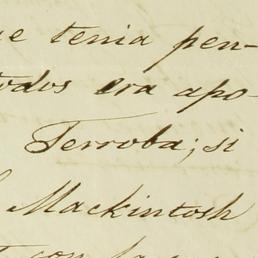 que tenia pen-
todos era apo-
Terroba; si
Mackintosh
con la